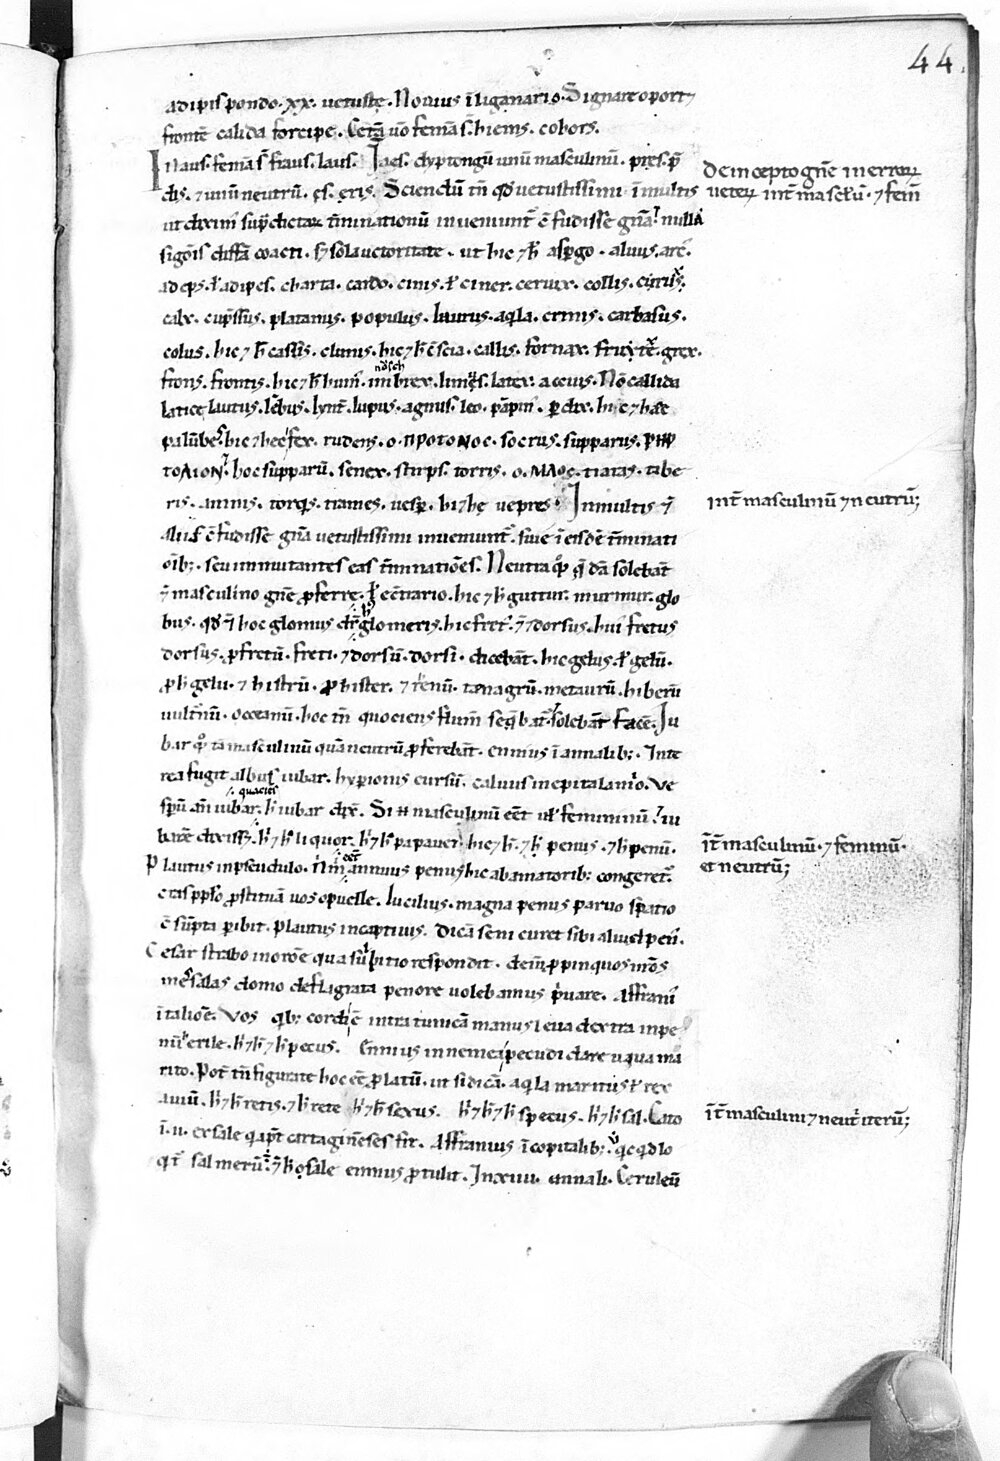 44.
adipis pondo .xx. uetuste. Nouius ī liganario. Signare oport&
frontē calida forcipe. Cetā ũo femā s̄. hiems. cohors.
In aus. femā s̄ fraus. laus. In aes. dyptongū unū masculinū. pres. p̄
dis. ⁊ unū neutrū. ęs. ęris. Sciendū tn̄ qđ uetustissimi ī multis
ut diximꝰ sup̄dictaꝝ t̄minationū inueniunt̄ c̄fudisse gn̄a. nulla
sig̊nis diff̄a coacti. s; sola auctoritate. ut hic ⁊ h̄ asp̄go. aluus. are.
adeps. ł adipes. charta. cardo. cinis. ł ciner. ceruix. collis.
calx. cup̄ssus. platanus. populus. laurus. aqla. crinis. carbasus.
colus. hic ⁊ h̄ cassis. clunis. hic ⁊ h̄ c̄scia. callis. fornax. frutex. grex.
frons. frontis. hic ⁊ h̄ humꝰ. imbrex. limes. latex. accius. Nō callida
latice lautus. lēbus. lynt̄. lupus. agnus. leo. pāpinꝰ. ꝑdix. hic ⁊ hec
palūbes. hic ⁊ hec fex. rudens. ο. πΡΟΤΟΝΟϹ. socrus. supparus.
hoc supparū. senex. stirps. torris. ο. ΜΑΛΟϹ. tiaras. tibe
ris. amnis. torq̄s. trames. uesp̄. hi ⁊ hę uepres. In multis ⁊
aliud c̄fudisse gn̄a uetustissimi inueniunt̄. siue ī eisdē t̄minati
oīb;. seu immutantes eas t̄minatiōes. Neutra q̊ꝗ q̄dā solebāt
⁊ masculino gn̄e ꝓferre. ł ec̄trario. hic ⁊ h̄ guttur. murmur. glo
bus. qđ ⁊ hoc glomus dr̄ glomeris. hic fret. ⁊ dorsus. huiꝰ fretus
dorsus. ꝓ fretū. freti. ⁊ dorsū. dorsi. dicebāt. hic gelus. ł gelū.
ꝓ h̄ gelu. ⁊ histrū. ꝓ hister. ⁊ renū. tanagrū. metaurū. hiberū
uultnū. oceanū. hoc tn̄ quociens flum̄ seq̄bat̄. solebant facē. Iu
bar q̊ꝗ tā masculinū quā neutrū ꝓferebāt. ennius ī annalib;. Inte
rea fugit albus iubar. hyperionis cursū. caluus in epitalamio. Ve
sp̄ū añ iubar. h̄ iubar dix̄.
Plautus in pseudulo. annuus penus hic ab amatorib; congeret̄.
Lucilius. magna penus paruo spatio
c̄sūpta ꝑibit. Plautus in captiuis. Dicā seni curet sibi aliud penꝰ.
Cesar strabo in orōe qua sulpitio respondit. deiñ ꝓpinquos nr̄os
mesalas domo deflagrata penore uolebamus p̄uare. Affraniꝰ
ī talioe. Vos qb; cordi ē intra tunicā manus leua dextra in pe
nū erile. h̄ ⁊ h̄ ⁊ h̄ pecus. Ennius in nemea pecudi dare uiua ma
rito. Pot̄ tn̄ figurate hoc ēē ꝓlatū. ut si dicā. aqla maritus ł rex
auiū. h̄ ⁊ h̄ retis. ⁊ h̄ rete h̄ ⁊ h̄ sexus. h̄ ⁊ h̄ ⁊ h̄ specus. h̄ ⁊ h̄ sal. Cato
ī .ii. ex sale q apt̄ cartaginēses fit. Affranius ī copitalib;. qcqd lo
qt̄ sal merū ē. ⁊ h̄ sale ennius ꝓtulit. In xiiii. annali. Ceruleū
De incepto gn̄e in errorꝝ
ueterꝝ int̄ mascłū. ⁊ femī
int̄ masculinū ⁊ neutrū;
īt̄ masculinū. ⁊ feminū.
et neutrū;
īt̄ masculinū ⁊ neut̄ iterū;